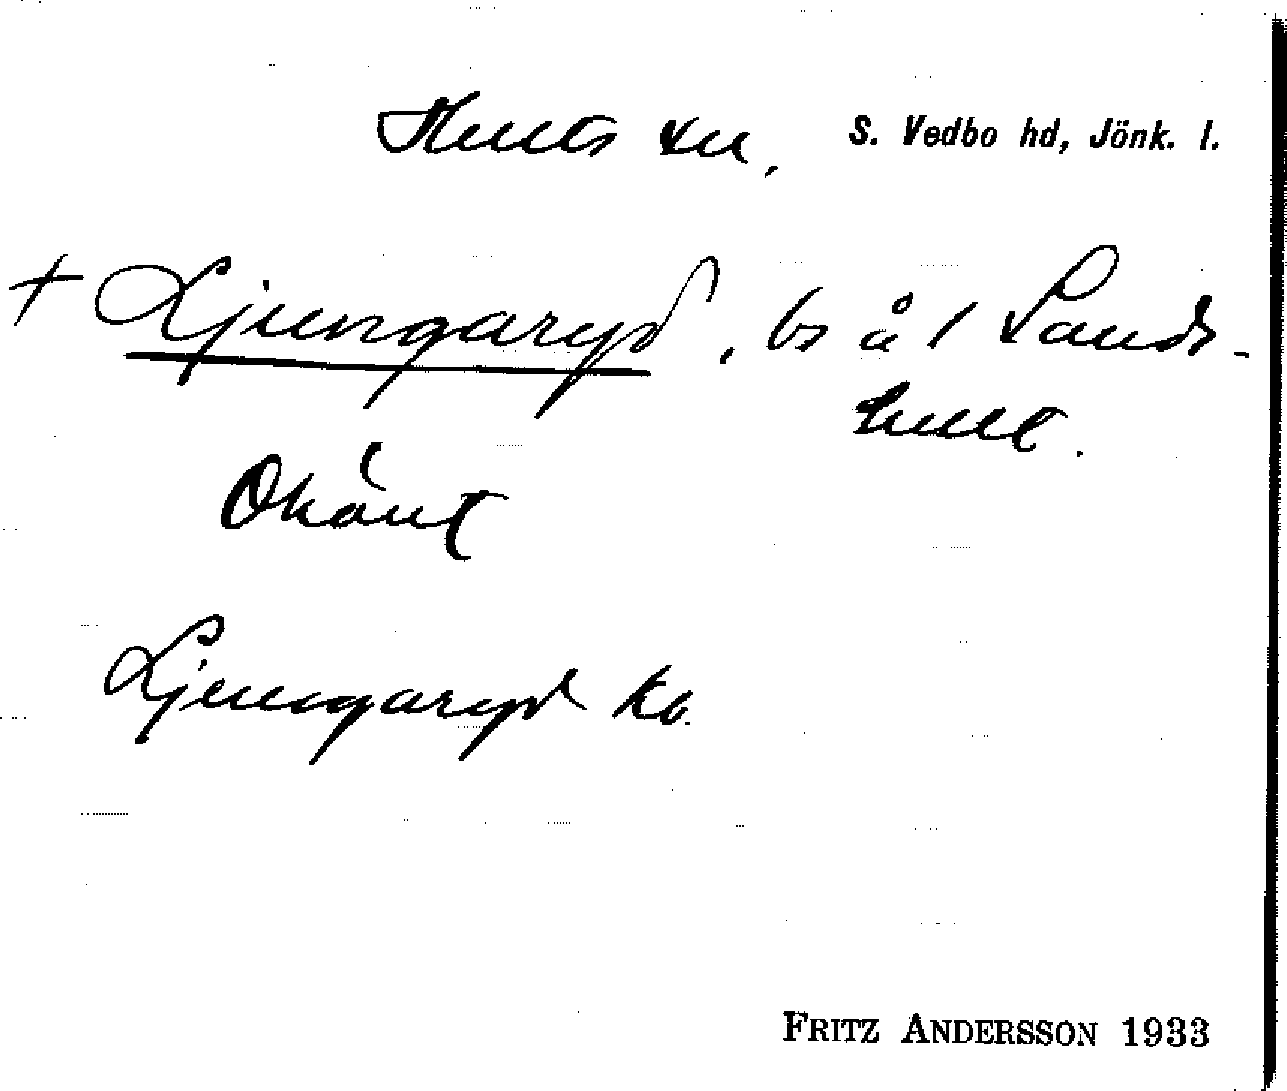 Hults sn, S. Vedbo hd, Jönk. l.
+ Ljungaryd, bs å 1 Sands-
hult.
Okänt
Ljungaryd kb.
FRITZ ANDERSSON 1933